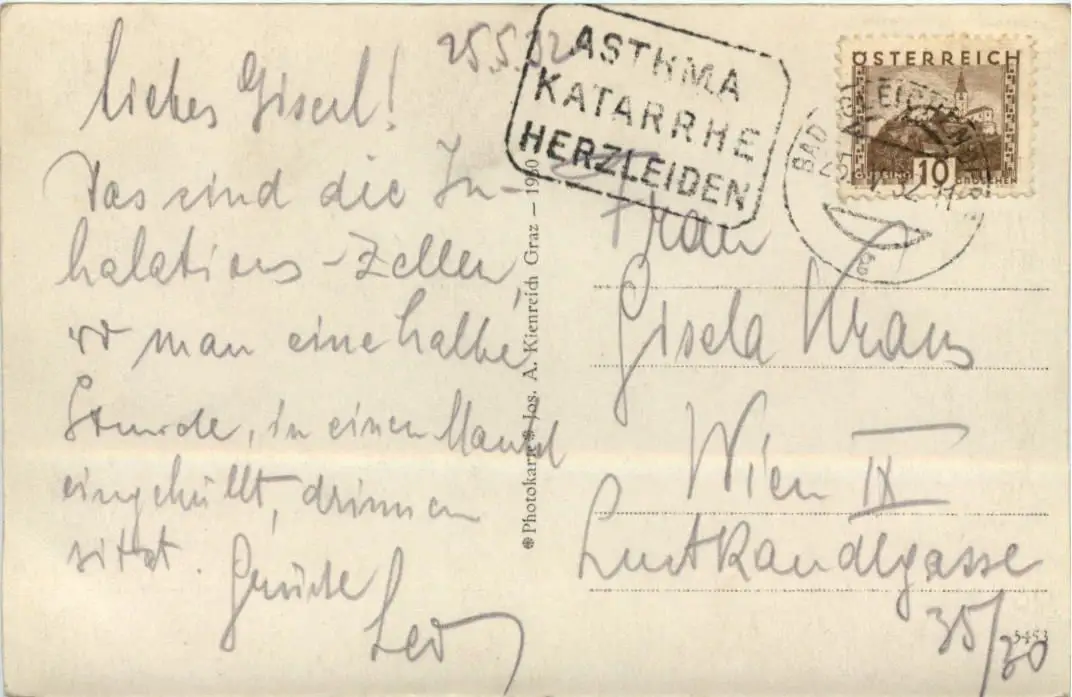 25.5.32
Liebes Giserl!
Das sind die In-
halations-Zellen,
wo man eine halbe
Stunde, in einen Mantel
eingehüllt, drinnen
sitzt. Grüße
Leo
ASTHMA
KATARRHE
HERZLEIDEN
ÖSTERREICH
GÜSSING 10 GROSCHEN
BAD GLEICHENBERG
Photokarte Jos. A. Kienreich Graz – 1930
Frau
Gisela Kraus
Wien IX
Lustkandlgasse
35/20
5453